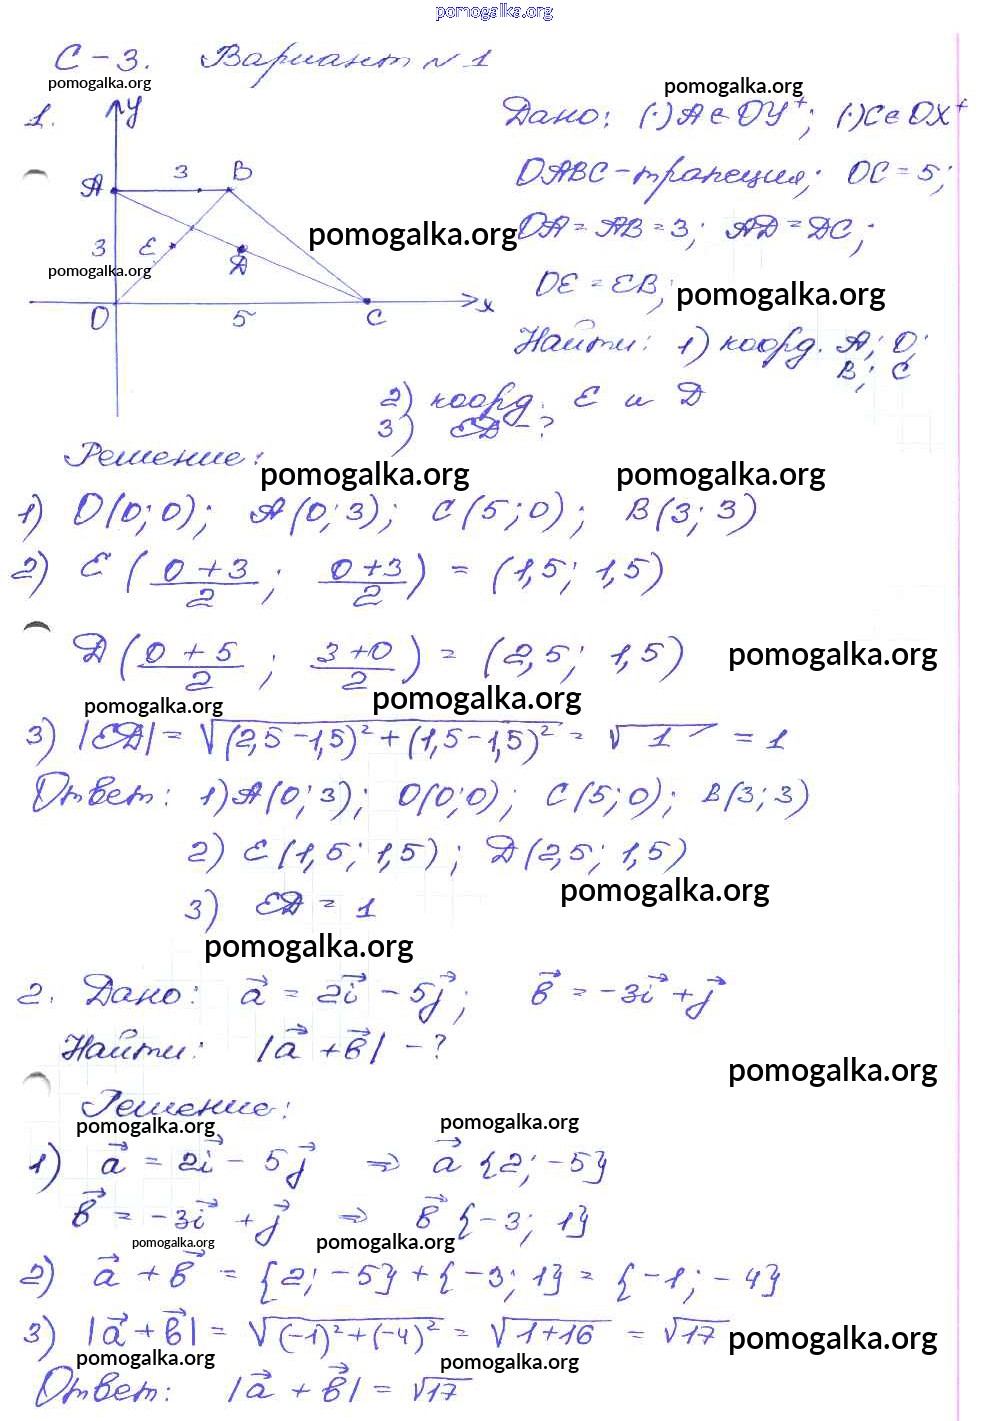 pomogalka.org
С-3. Вариант №1
pomogalka.org pomogalka.org
1. y Дано: (·)A∈OY⁺; (·)C∈OX⁺
A 3 B OABC-трапеция; OC=5;
pomogalka.org OA=AB=3; AD=DC;
3 E D
pomogalka.org OE=EB; pomogalka.org
O 5 C x
Найти: 1) коорд. A; O;
B; C
2) коорд. E и D
3) ED-?
Решение:
pomogalka.org pomogalka.org
1) O(0;0); A(0;3); C(5;0); B(3;3)
2) E((0+3)/2; (0+3)/2) = (1,5; 1,5)
D((0+5)/2; (3+0)/2) = (2,5; 1,5) pomogalka.org
pomogalka.org pomogalka.org
3) |ED| = √((2,5-1,5)²+(1,5-1,5)²) = √1 = 1
Ответ: 1) A(0;3); O(0;0); C(5;0); B(3;3)
2) E(1,5; 1,5); D(2,5; 1,5)
pomogalka.org
3) ED = 1
pomogalka.org
2. Дано: a⃗ = 2i⃗ - 5j⃗; b⃗ = -3i⃗ + j⃗
Найти: |a⃗ + b⃗| - ?
pomogalka.org
Решение:
pomogalka.org pomogalka.org
1) a⃗ = 2i⃗ - 5j⃗ ⇒ a⃗ {2; -5}
b⃗ = -3i⃗ + j⃗ ⇒ b⃗ {-3; 1}
pomogalka.org pomogalka.org
2) a⃗ + b⃗ = {2; -5} + {-3; 1} = {-1; -4}
3) |a⃗ + b⃗| = √((-1)²+(-4)²) = √(1+16) = √17 pomogalka.org
pomogalka.org pomogalka.org
Ответ: |a⃗ + b⃗| = √17